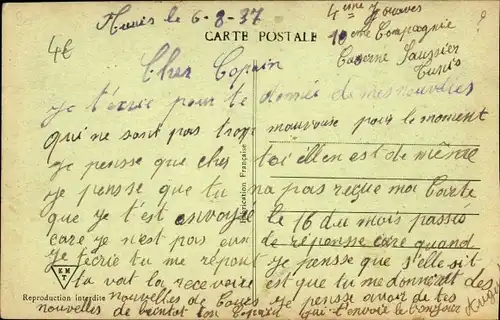 Tunis le 6-8-37
4€
4eme Zouaves
10eme Compagnie
Caserne Saussier
Tunis
CARTE POSTALE
Cher Copain
Je t'écrie pour te donnée de mes nouvelles
qui ne sont pas trop mauvaise pour le moment
je pensse que cher toi illen est de même
je pensse que tu na pas reçue ma Carte
que je t'est envoyée le 16 du mois passée
care je n'est pas eue de réponsse care quand
je t'écrie tu me répont je pensse que s'elle sit
tu vat la recevoire est que tu me donnerat des
nouvelles de je pensse avoir de tes
nouvelles de bientot ton Copain qui t'envoie le bonjour
Fabrication Française
EMT
Reproduction interdite